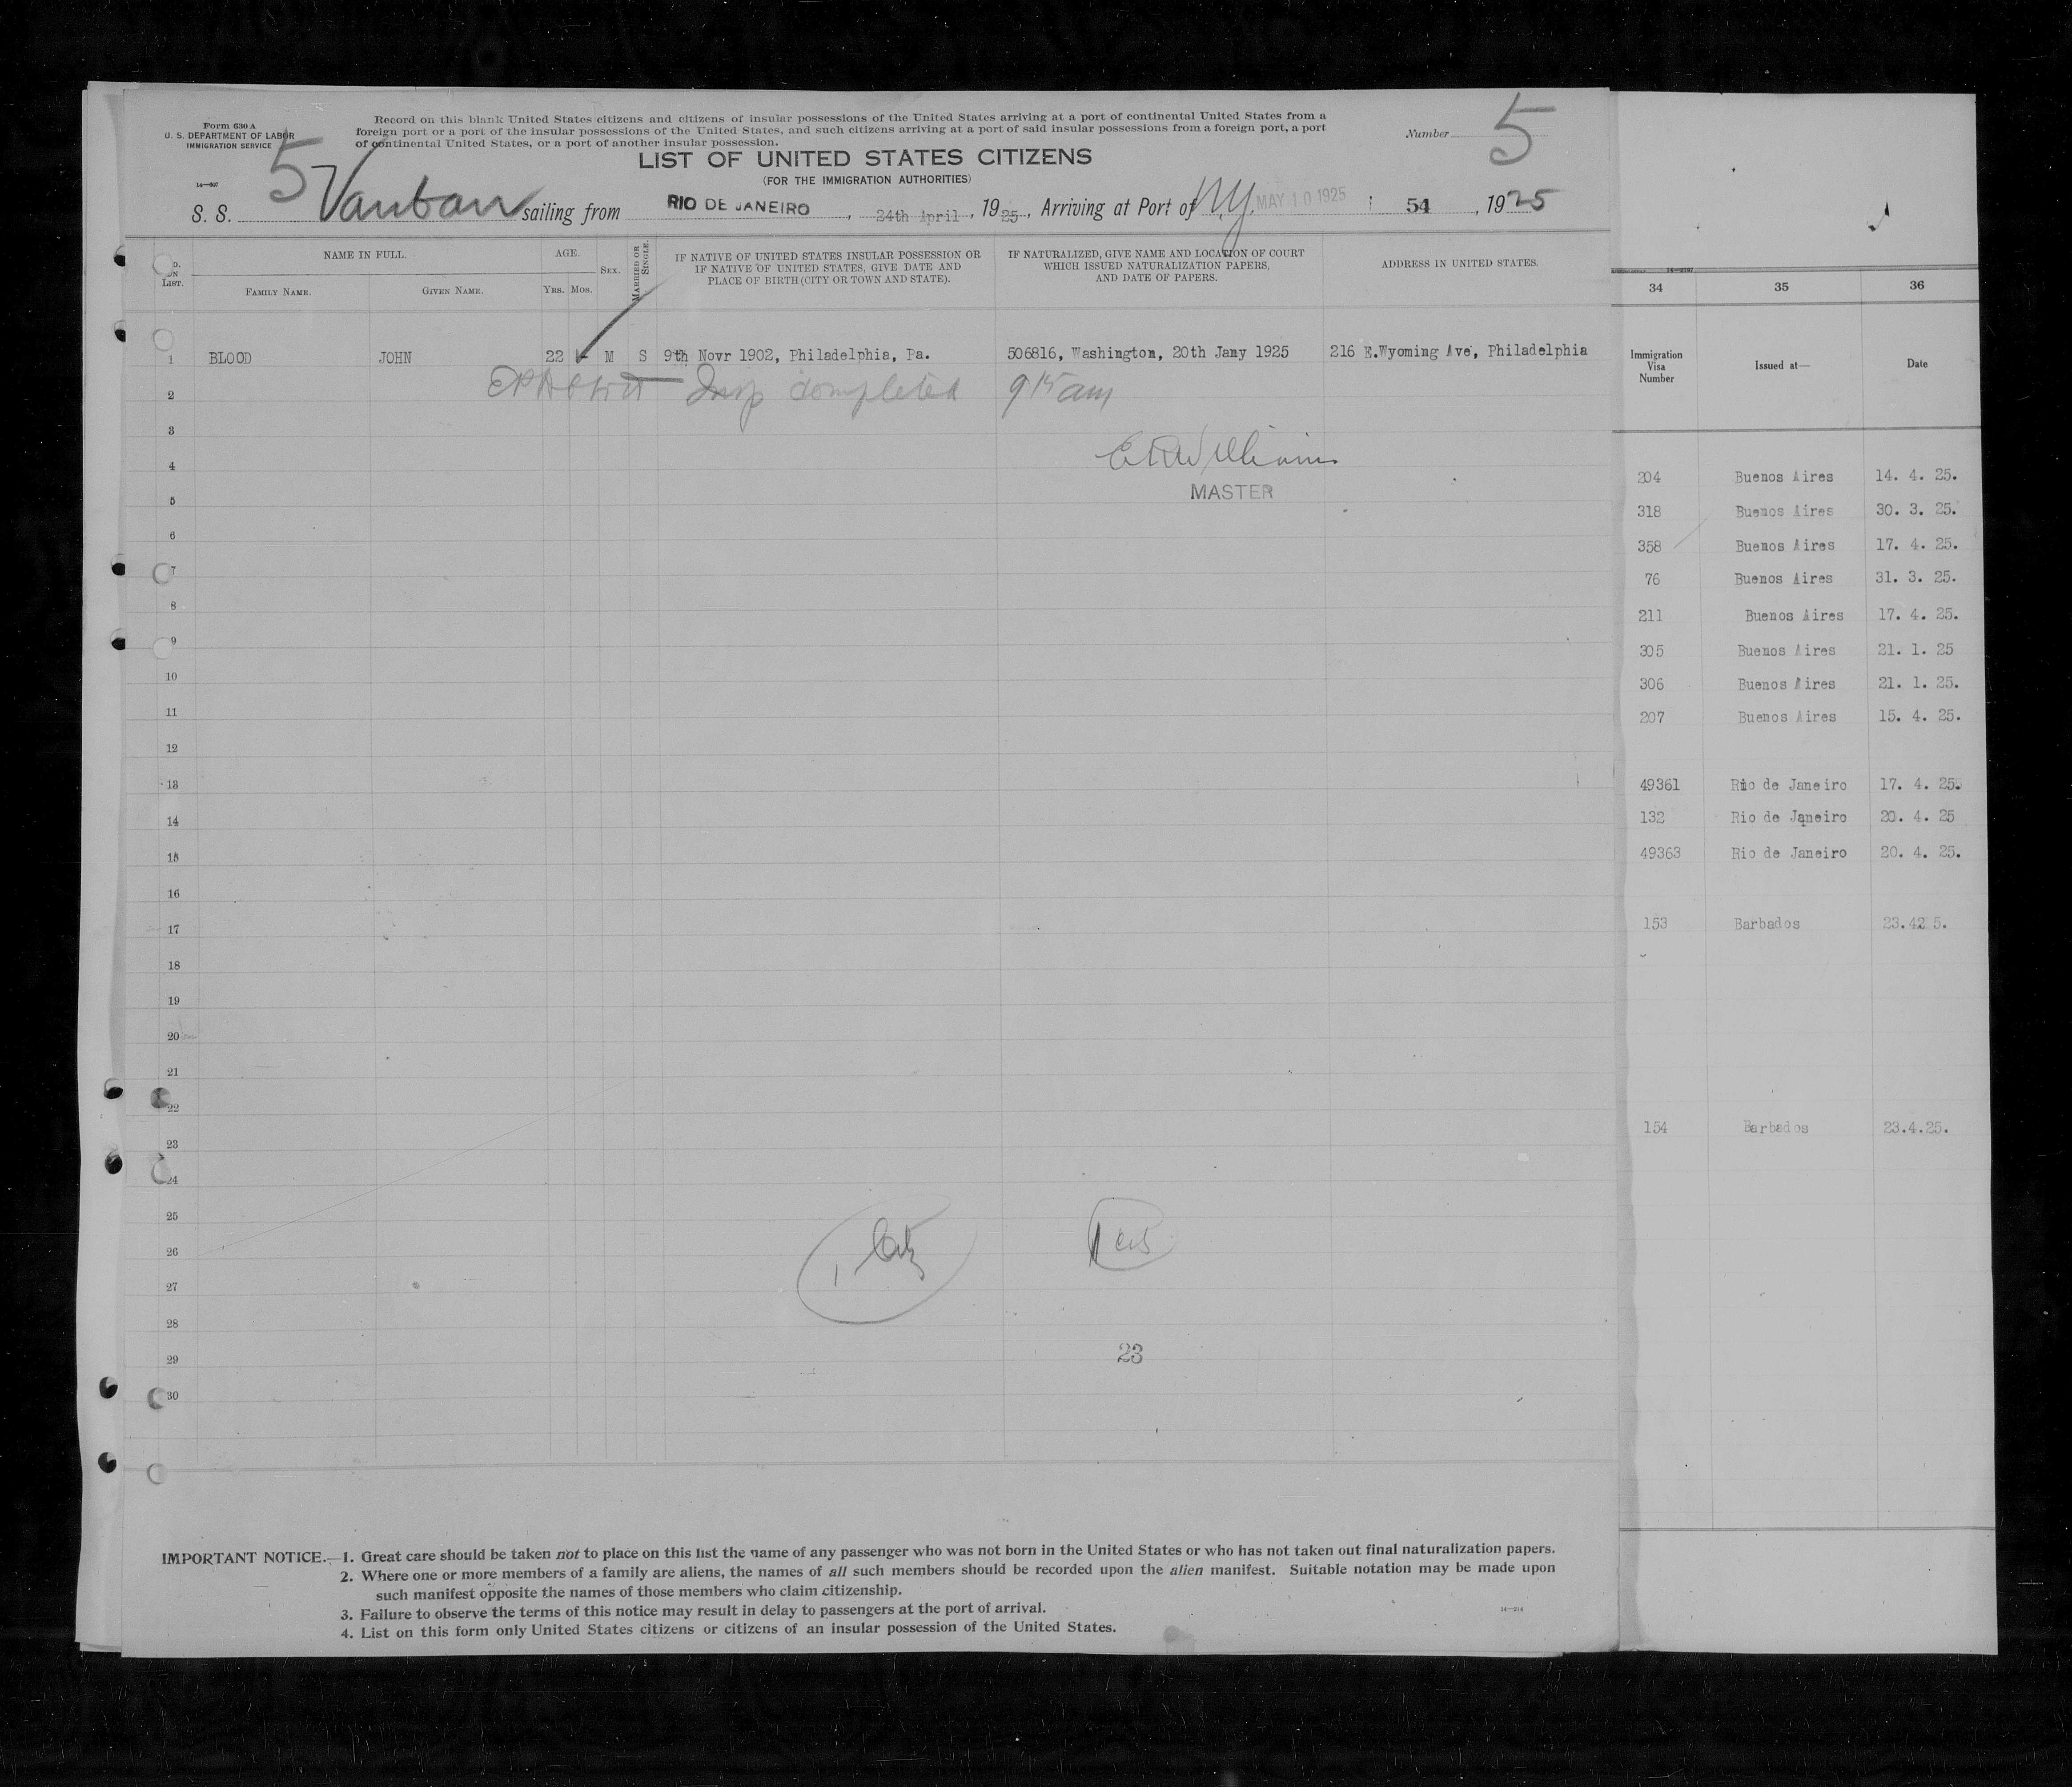 Form 630 A
U. S. DEPARTMENT OF LABOR
IMMIGRATION SERVICE
14—607
Record on this blank United States citizens and citizens of insular possessions of the United States arriving at a port of continental United States from a
foreign port or a port of the insular possessions of the United States, and such citizens arriving at a port of said insular possessions from a foreign port, a port
of continental United States, or a port of another insular possession.
Number 5
LIST OF UNITED STATES CITIZENS
(FOR THE IMMIGRATION AUTHORITIES)
5
S. S. Vauban sailing from RIO DE JANEIRO, 24th April, 1925, Arriving at Port of N.Y. MAY 10 1925 54, 1925
LIST.
NAME IN FULL.
FAMILY NAME.
GIVEN NAME.
AGE.
YRS. MOS.
SEX.
MARRIED OR SINGLE.
IF NATIVE OF UNITED STATES INSULAR POSSESSION OR
IF NATIVE OF UNITED STATES, GIVE DATE AND
PLACE OF BIRTH (CITY OR TOWN AND STATE).
IF NATURALIZED, GIVE NAME AND LOCATION OF COURT
WHICH ISSUED NATURALIZATION PAPERS,
AND DATE OF PAPERS.
ADDRESS IN UNITED STATES.
1 BLOOD JOHN 22 - M S 9th Novr 1902, Philadelphia, Pa. 506816, Washington, 20th Jany 1925 216 E.Wyoming Ave, Philadelphia
2 Insp completed 9 15 am
3
4
MASTER
5
6
7
8
9
10
11
12
13
14
15
16
17
18
19
20
21
22
23
24
25
26
27
28
29
30
23
34 35 36
Immigration
Visa
Number
Issued at—
Date
204 Buenos Aires 14. 4. 25.
318 Buenos Aires 30. 3. 25.
358 Buenos Aires 17. 4. 25.
76 Buenos Aires 31. 3. 25.
211 Buenos Aires 17. 4. 25.
305 Buenos Aires 21. 1. 25
306 Buenos Aires 21. 1. 25.
207 Buenos Aires 15. 4. 25.
49361 Rio de Janeiro 17. 4. 25.
132 Rio de Janeiro 20. 4. 25
49363 Rio de Janeiro 20. 4. 25.
153 Barbados 23.42 5.
154 Barbados 23.4.25.
IMPORTANT NOTICE.—1. Great care should be taken not to place on this list the name of any passenger who was not born in the United States or who has not taken out final naturalization papers.
2. Where one or more members of a family are aliens, the names of all such members should be recorded upon the alien manifest. Suitable notation may be made upon
such manifest opposite the names of those members who claim citizenship.
3. Failure to observe the terms of this notice may result in delay to passengers at the port of arrival.
4. List on this form only United States citizens or citizens of an insular possession of the United States.
14—214